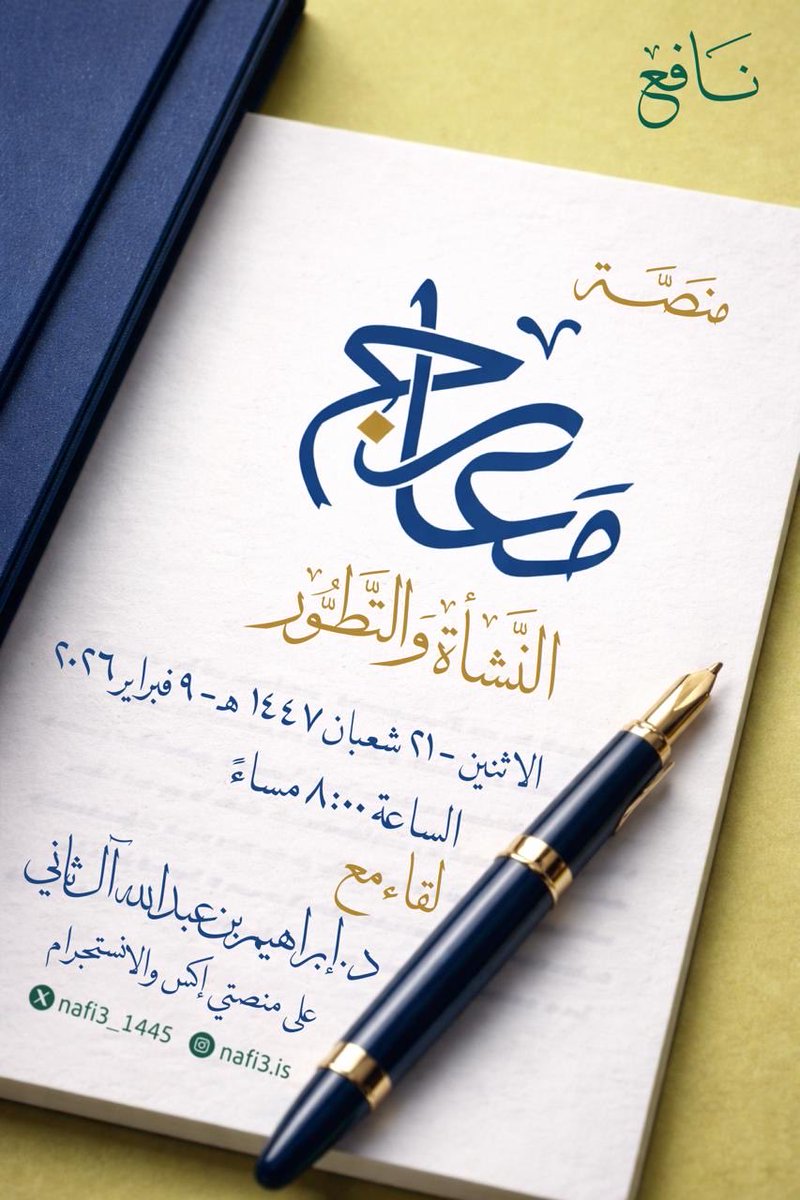 نافع
منصَّة
معارج
النَّشأة والتَّطوُّر
الاثنين - ٢١ شعبان ١٤٤٧ هـ - ٩ فبراير ٢٠٢٦
الساعة ٨:٠٠ مساءً
لقاء مع
د. إبراهيم بن عبدالله آل ثاني
على منصتي إكس والانستجرام
X nafi3_1445 nafi3.is